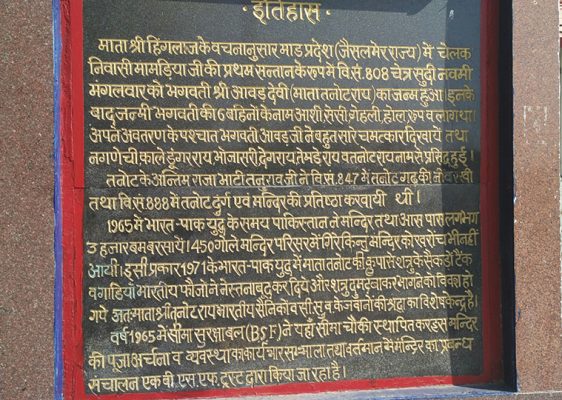 · इतिहास ·
माता श्री हिंगलाज के वचनानुसार माड प्रदेश (जैसलमेर राज्य) में चेलक
निवासी मामड़िया जी की प्रथम सन्तान के रूप में वि.सं. 808 चैत्र सुदी नवमी
मंगलवार को भगवती श्री आवड़ देवी (माता तनोट राय) का जन्म हुआ। इनके
बाद जन्मी भगवती की 6 बहिनों के नाम आशी, सेसी, गेहली, होल, रूप व लाग था।
अपने अवतरण के पश्चात भगवती आवड़ जी ने बहुत सारे चमत्कार दिखाये तथा
नगणेची काले डूंगरराय भोजासरी देगराय तेमडेराय व तनोट राय नाम से प्रसिद्ध हुई।
तनोट के अन्तिम राजा भाटी तनुराव जी ने वि.सं. 847 में तनोट गढ़ की नींव रखी
तथा वि.सं. 888 में तनोट दुर्ग एवं मन्दिर की प्रतिष्ठा करवायी थी।
1965 में भारत-पाक युद्ध के समय पाकिस्तान ने मन्दिर तथा आस पास लगभग
3 हजार बम बरसाये। 450 गोले मन्दिर परिसर में गिरे किन्तु मन्दिर को खरोंच भी नहीं
आयी। इसी प्रकार 1971 के भारत-पाक युद्ध में माता तनोट की कृपा से शत्रु के सेकड़ों टैंक
व गाड़ियाँ भारतीय फौजों ने नेस्तनाबूद कर दिये और शत्रु दुम दबाकर भागने को विवश हो
गये अतः माता श्री तनोट राय भारतीय सैनिकों व सी.सु.ब. के जवानों की श्रद्धा का विशेष केन्द्र है।
वर्ष 1965 में सीमा सुरक्षा बल (BSF) ने यहाँ सीमा चौकी स्थापित कर इस मन्दिर
की पूजा अर्चना व व्यवस्था का कार्यभार सम्भाला तथा वर्तमान में मन्दिर का प्रबन्ध
संचालन एक बी.एस.एफ. ट्रस्ट द्वारा किया जा रहा है।